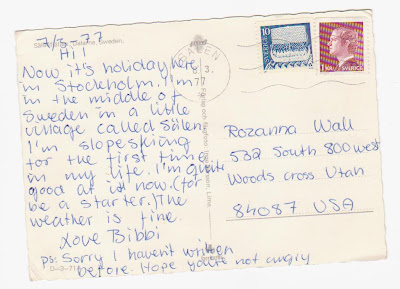 7/3-77
Hi!
Now it's holiday here
in Stockholm. I'm
in the middle of
Sweden in a little
village called Sälen.
I'm slopeskiing
for the first time
in my life. I'm quite
good at it now. (for
be a starter.) The
weather is fine.
Love Bibbi
ps: Sorry I haven't written
before. Hope you're not angry
SÄLEN
3.
77
10
SVERIGE
1 KR
SVERIGE
Rozanna Wall
532 South 800 west
Woods cross Utah
84087 USA